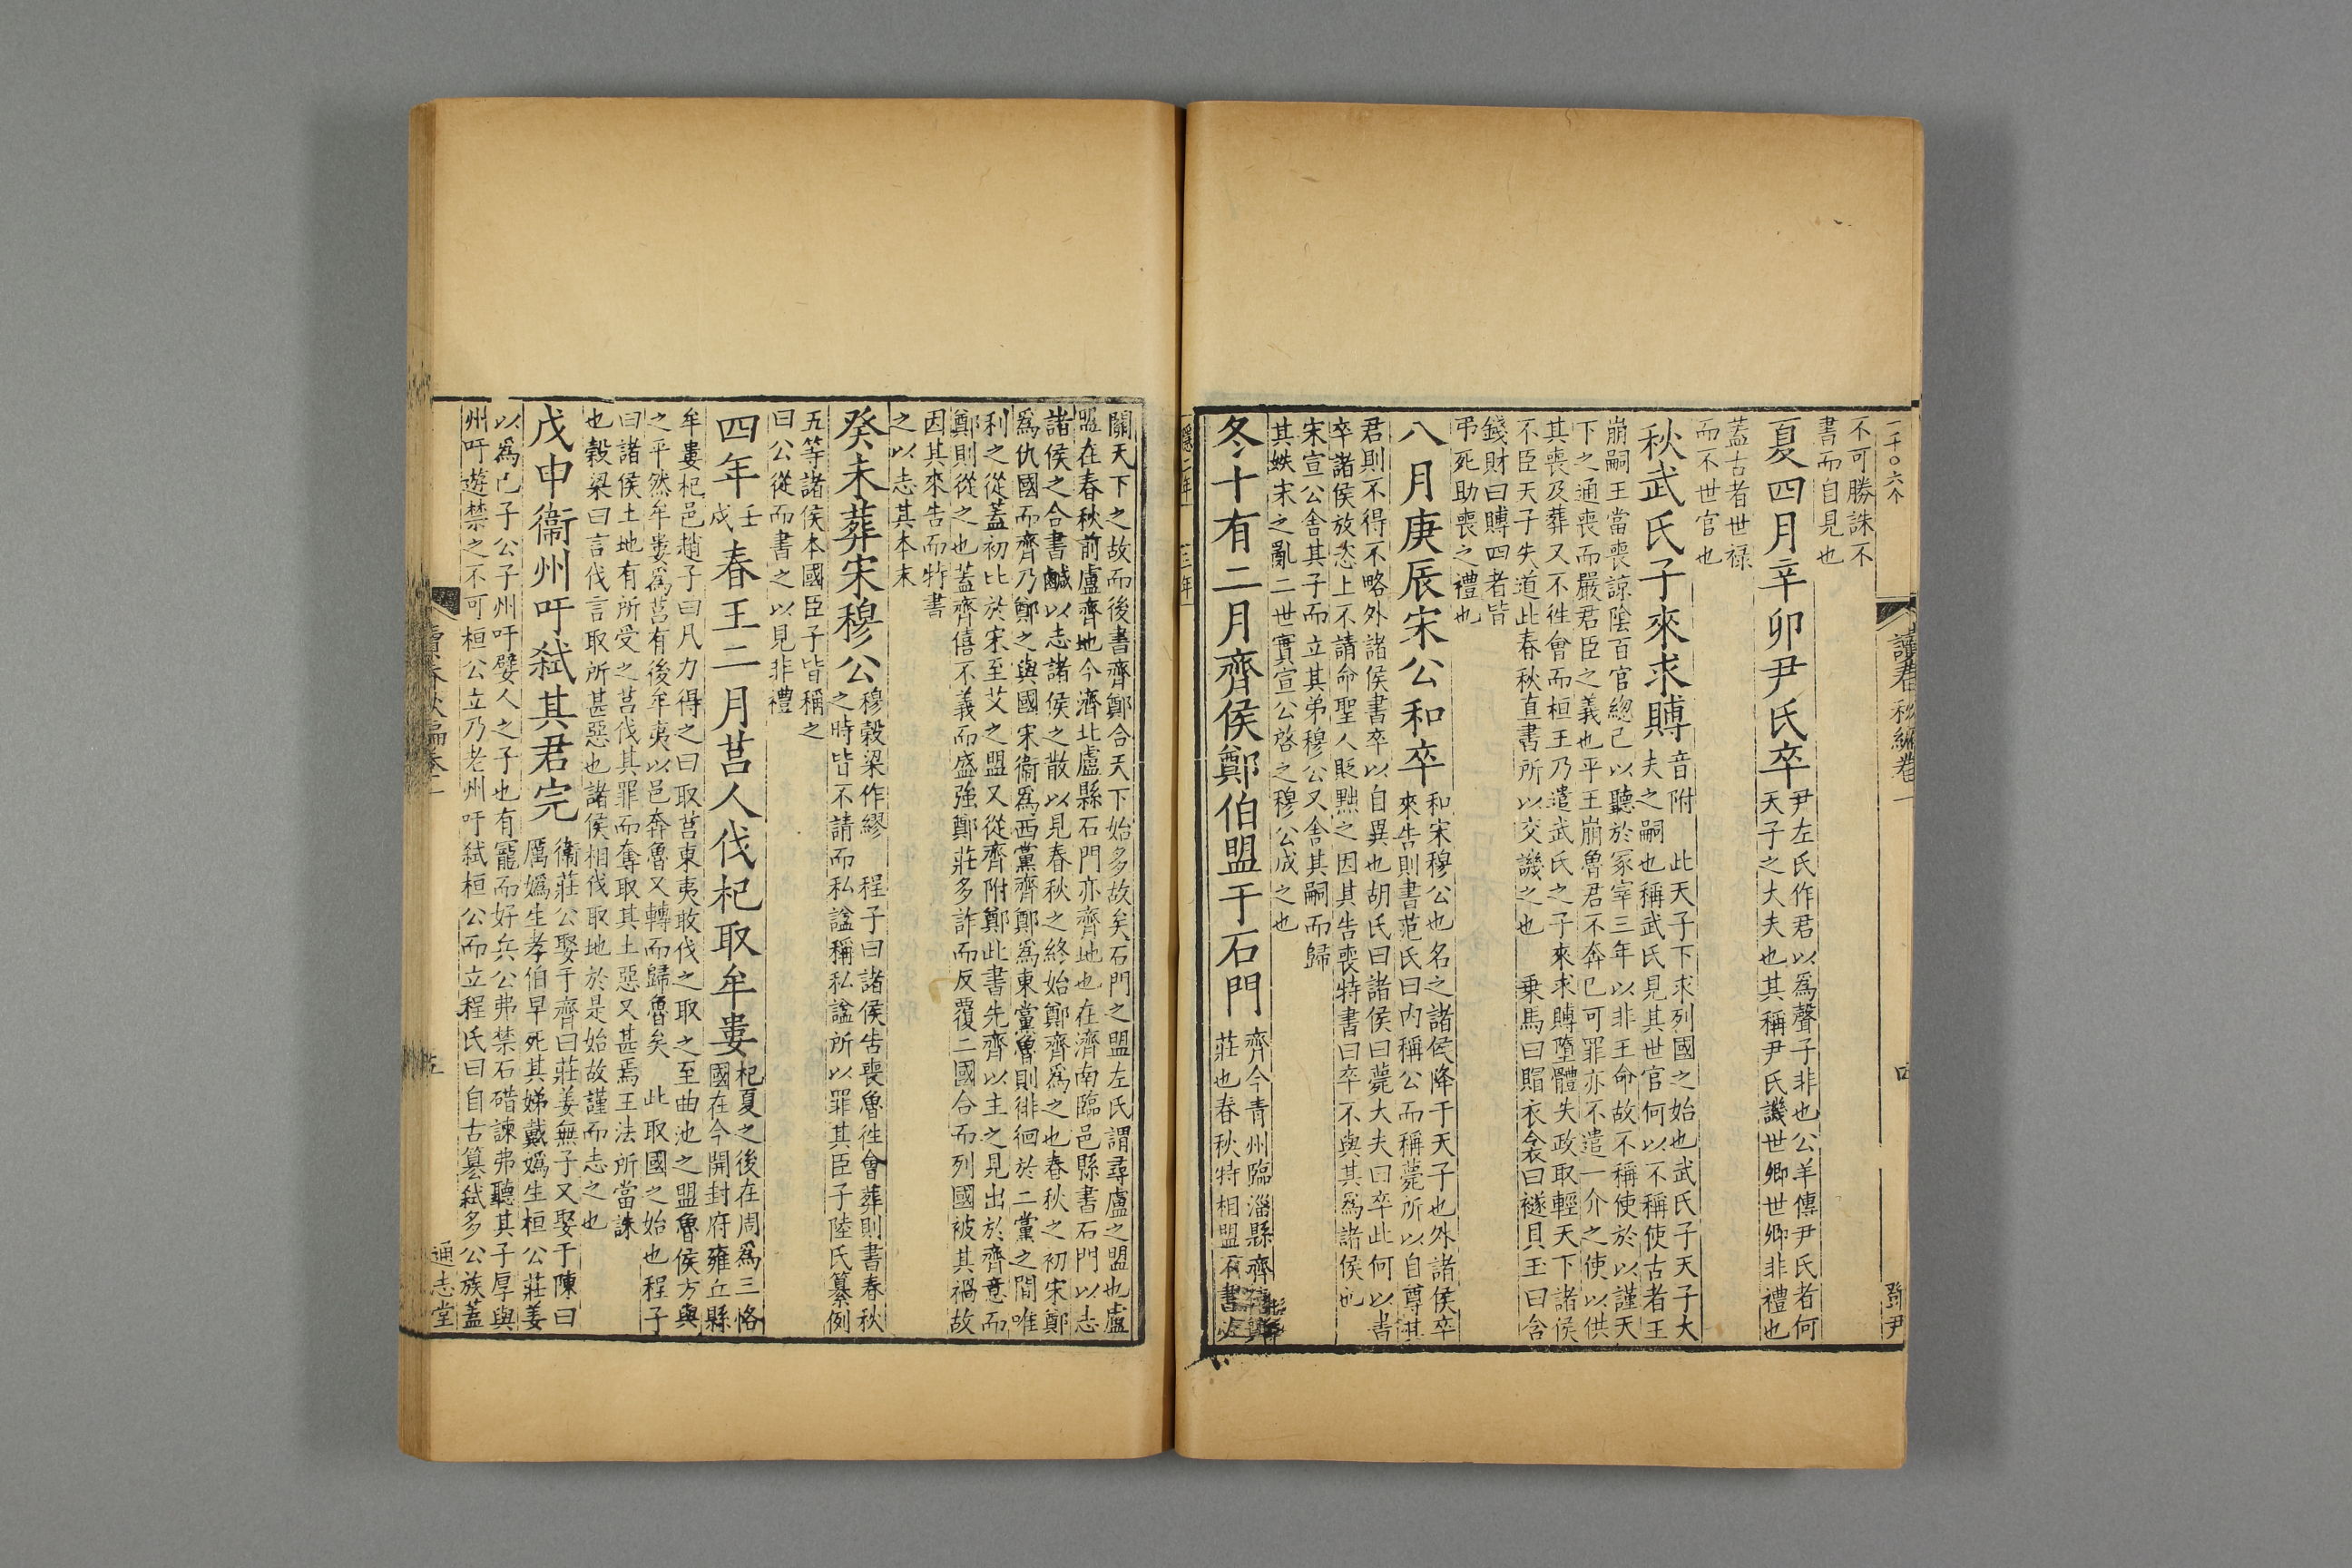 一千〇六个
讀春秋編卷一
四
鄧尹
不可勝誅不
書而自見也
夏四月辛卯尹氏卒
尹左氏作君以爲聲子非也公羊傳尹氏者何
天子之大夫也其稱尹氏譏世卿世卿非禮也
蓋古者世禄
而不世官也
秋武氏子來求賻
音附 此天子下求列國之始也武氏子天子大
夫之嗣也稱武氏見其世官何以不稱使古者王
崩嗣王當喪諒陰百官緫己以聽於冢宰三年以非王命故不稱使於以謹天
下之通喪而嚴君臣之義也平王崩魯君不奔已可罪亦不遣一介之使以供
其喪及葬又不徃會而桓王乃遣武氏之子來求賻墮體失政取輕天下諸侯
不臣天子失道此春秋直書所以交譏之也 乗馬曰賵衣衾曰襚貝玉曰含
錢財曰賻四者皆
弔死助喪之禮也
八月庚辰宋公和卒
和宋穆公也名之諸侯降于天子也外諸侯卒
來告則書范氏曰内稱公而稱薨所以自尊其
君則不得不略外諸侯書卒以自異也胡氏曰諸侯曰薨大夫曰卒此何以書
卒諸侯放恣上不請命聖人貶黜之因其告喪特書曰卒不與其爲諸侯也
宋宣公舍其子而立其弟穆公又舍其嗣而歸
其姪宋之亂二世實宣公啓之穆公成之也
冬十有二月齊侯鄭伯盟于石門
齊今青州臨淄縣齊
莊也春秋特相盟不書必
隱二年 三年
關天下之故而後書齊鄭合天下始多故矣石門之盟左氏謂尋盧之盟也盧
盟在春秋前盧齊地今濟北盧縣石門亦齊地也在濟南臨邑縣書石門以志
諸侯之合書鹹以志諸侯之散以見春秋之終始鄭齊爲之也春秋之初宋鄭
爲仇國而齊乃鄭之與國宋衞爲西黨齊鄭爲東黨魯則徘徊於二黨之間唯
利之從蓋初比於宋至艾之盟又從齊附鄭此書先齊以主之見出於齊意而
鄭則從之也蓋齊僖不義而盛強鄭莊多詐而反覆二國合而列國被其禍故
因其來告而特書
之以志其本末
癸未葬宋穆公
穆榖梁作繆 程子曰諸侯告喪魯徃會葬則書春秋
之時皆不請而私諡稱私諡所以罪其臣子陸氏纂例
五等諸侯本國臣子皆稱之
曰公從而書之以見非禮
四年
壬
戌
春王二月莒人伐杞取牟婁
杞夏之後在周爲三恪
國在今開封府雍丘縣
牟婁杞邑趙子曰凡力得之曰取莒東夷敢伐之取之至曲池之盟魯侯方與
之平然牟婁爲莒有後牟夷以邑奔魯又轉而歸魯矣 此取國之始也程子
曰諸侯土地有所受之莒伐其罪而奪取其土惡又甚焉王法所當誅
也榖梁曰言伐言取所甚惡也諸侯相伐取地於是始故謹而志之也
戊申衞州吁弑其君完
衞莊公娶于齊曰莊姜無子又娶于陳曰
厲嬀生孝伯早死其娣戴嬀生桓公莊姜
以爲己子公子州吁嬖人之子也有寵而好兵公弗禁石碏諫弗聽其子厚與
州吁遊禁之不可桓公立乃老州吁弑桓公而立程氏曰自古簒弑多公族蓋
讀春秋編卷一
五
通志堂